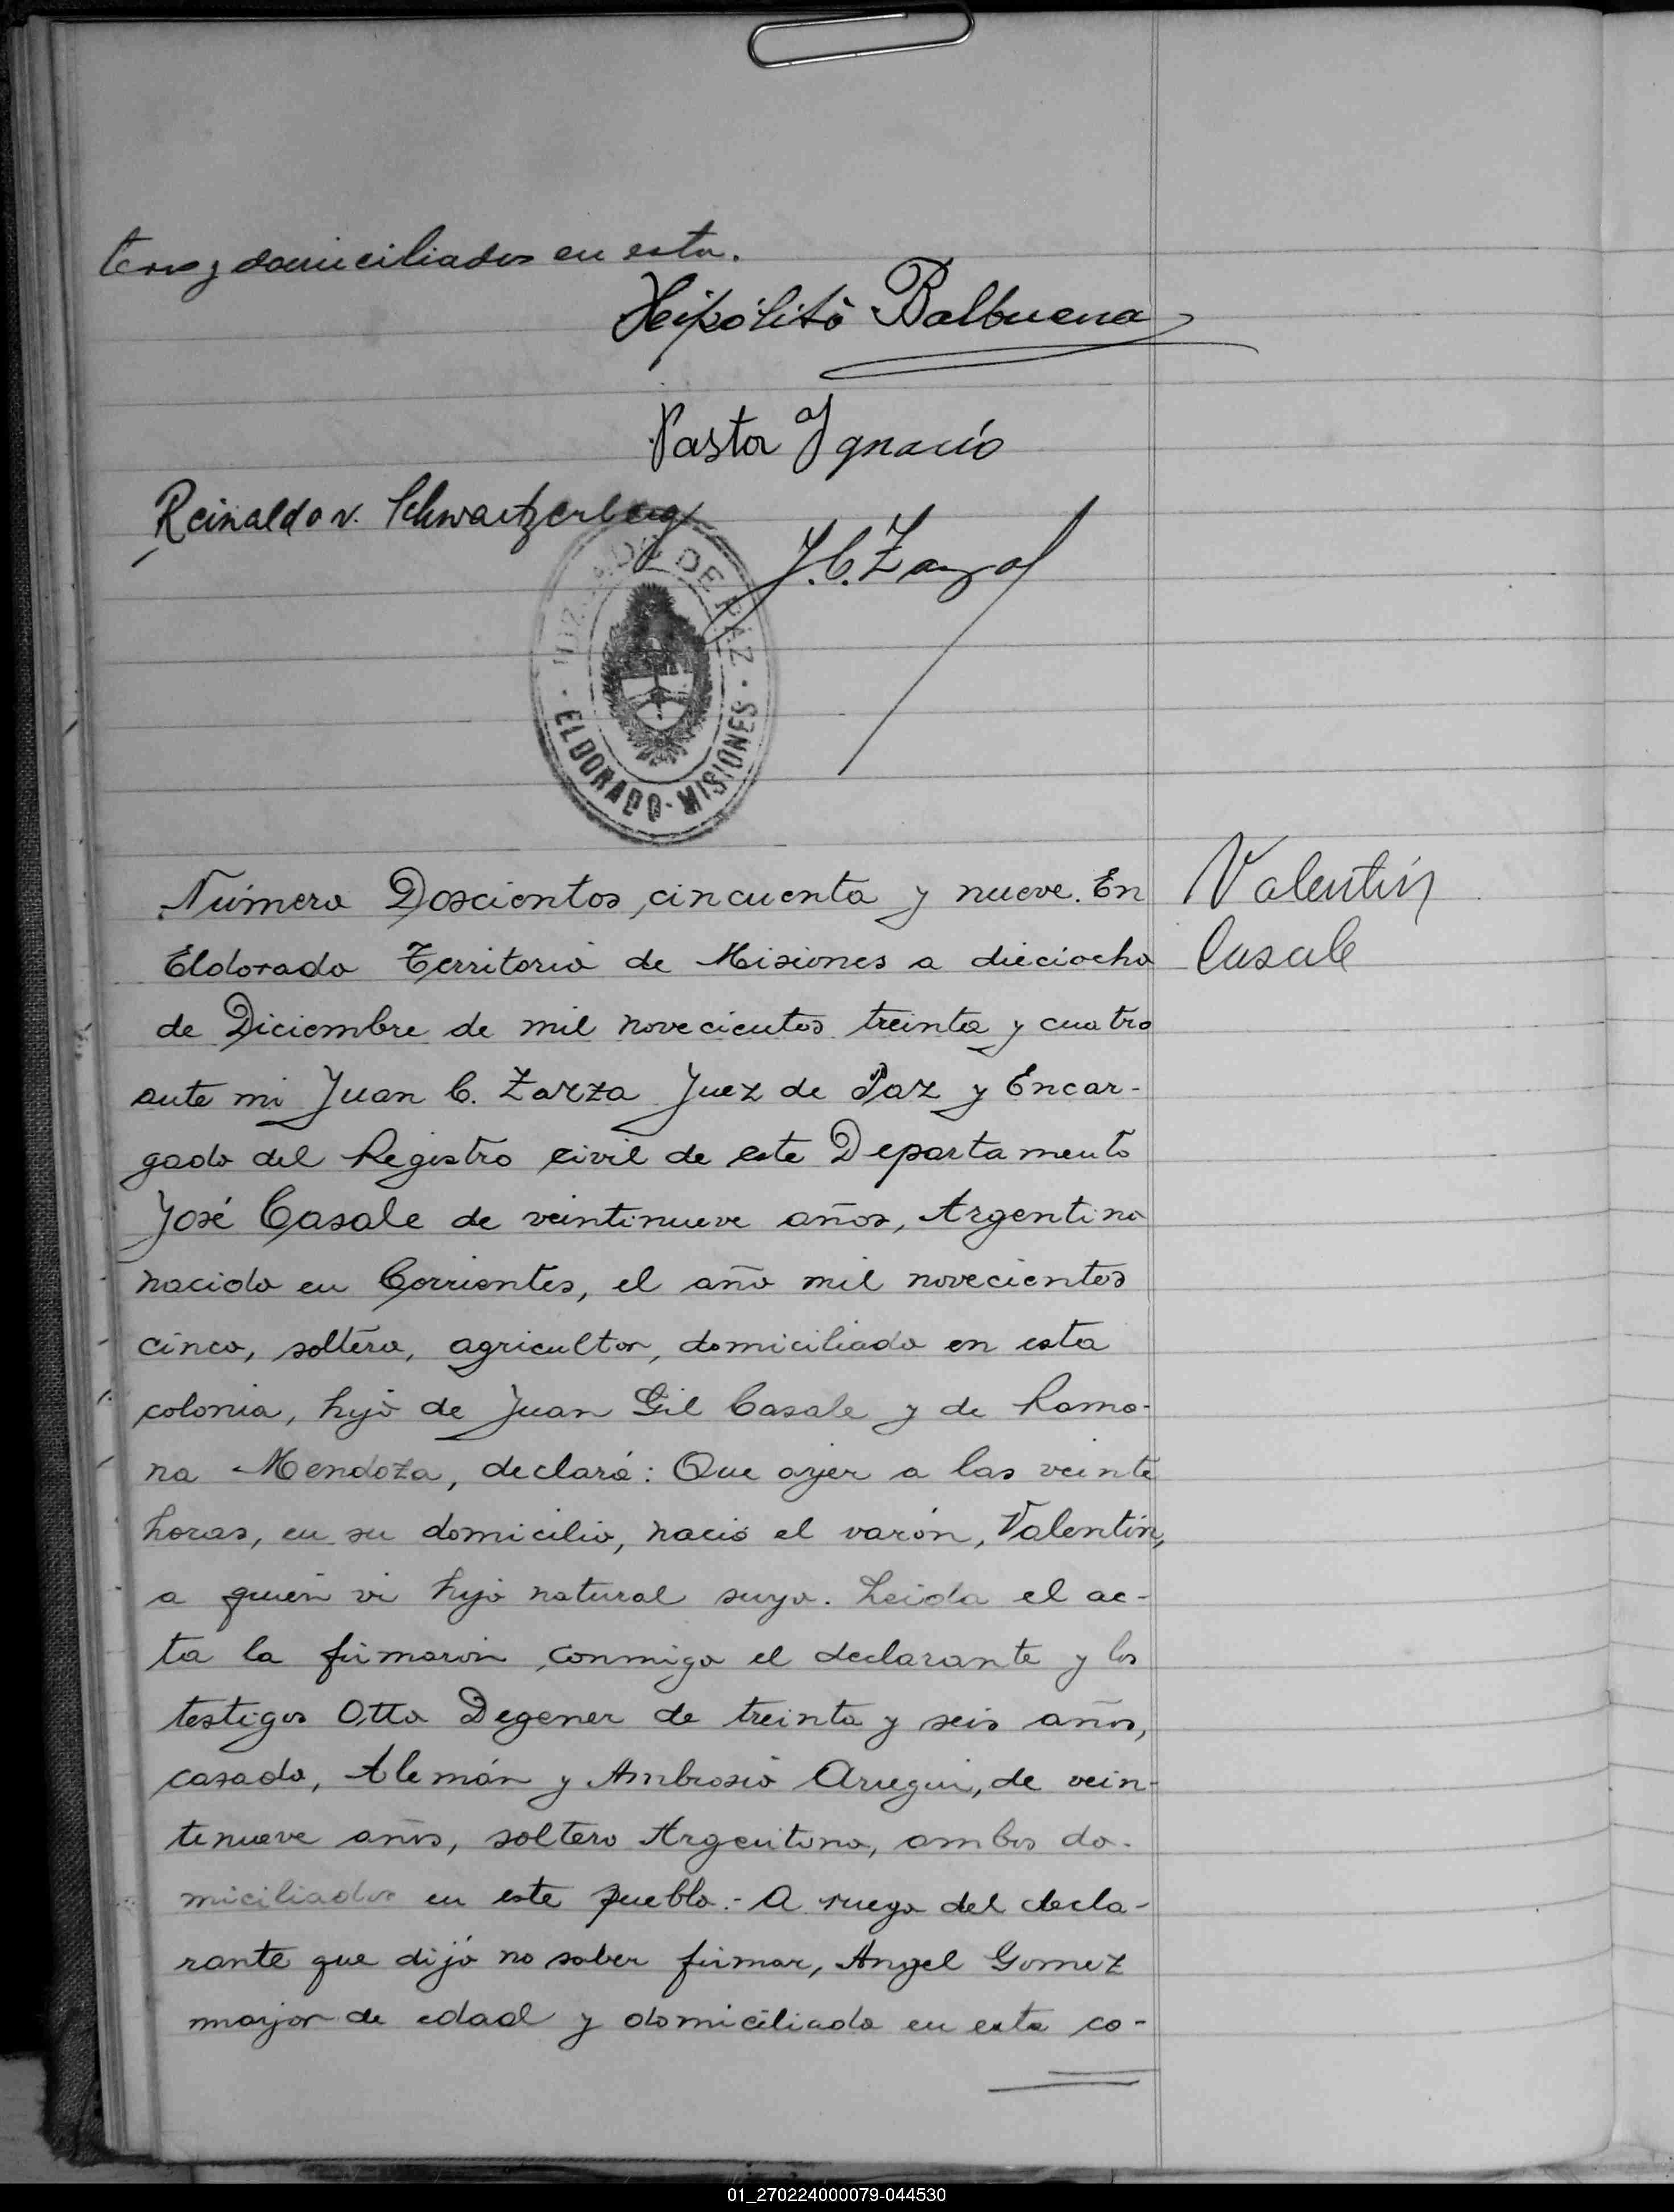 teros y domiciliados en esta.
Hipólito Balbuena
Pastor Ignacio
Reinaldo v. Schwartzerberg
J.C. Zarza
JUZGADO DE PAZ
ELDORADO - MISIONES
Número Doscientos cincuenta y nueve. En
Valentín
Eldorado Territorio de Misiones a dieciocho
Casale
de Diciembre de mil novecientos treinta y cuatro
ante mi Juan C. Zarza Juez de Paz y Encar-
gado del Registro civil de este Departamento
José Casale de veintinueve años, Argentino
nacido en Corrientes, el año mil novecientos
cinco, soltero, agricultor, domiciliado en esta
colonia, hijo de Juan Gil Casale y de Ramo-
na Mendoza, declaró: Que ayer a las veinte
horas, en su domicilio, nació el varón, Valentín,
a quien vi hijo natural suyo. Leida el ac-
ta la firmaron conmigo el declarante y los
testigos Otto Degener de treinta y seis años,
casado, Alemán y Ambrosio Aruegui, de vein-
tinueve años, soltero Argentino, ambos do-
miciliados en este pueblo.- A ruego del decla-
rante que dijo no saber firmar, Angel Gomez
mayor de edad y domiciliado en esta co-
01_270224000079-044530